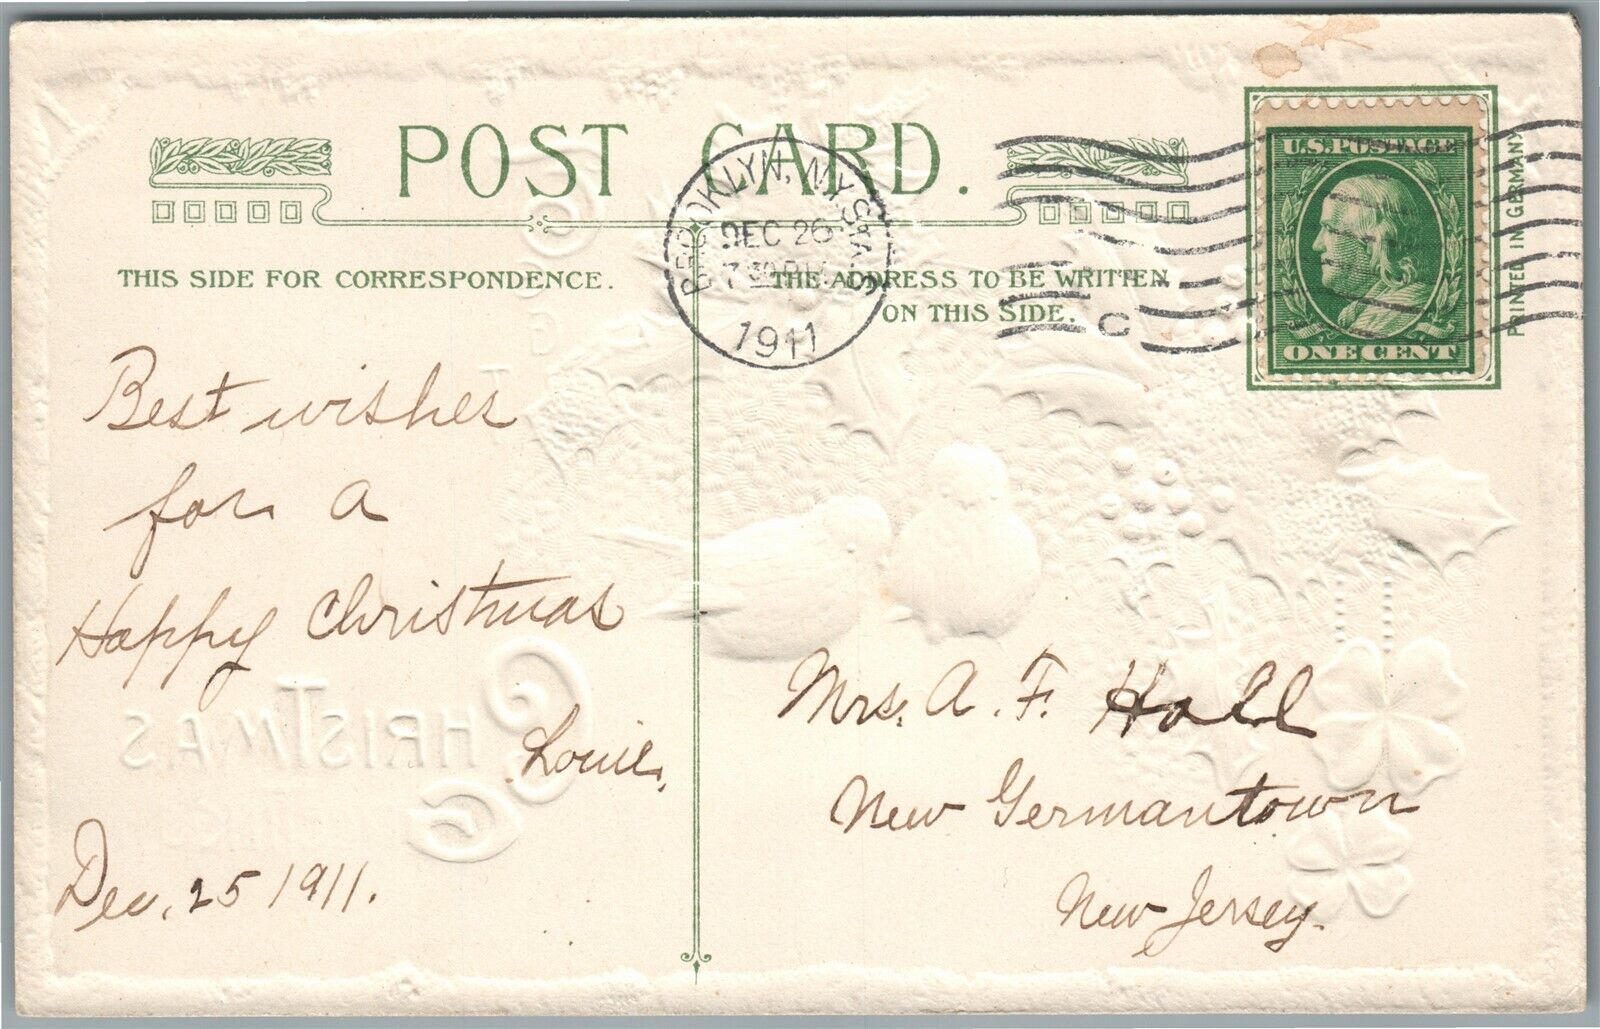 POST CARD.
THIS SIDE FOR CORRESPONDENCE.
THE ADDRESS TO BE WRITTEN
ON THIS SIDE.
BROOKLYN, N.Y.
DEC 26
7 30 P
1911
C
U.S. POSTAGE
ONE CENT
PRINTED IN GERMANY
Best wishes
for a
Happy Christmas
Louie.
Dec. 25 1911.
Mrs. A. F. Hall
New Germantown
New Jersey.
CHRISTMAS